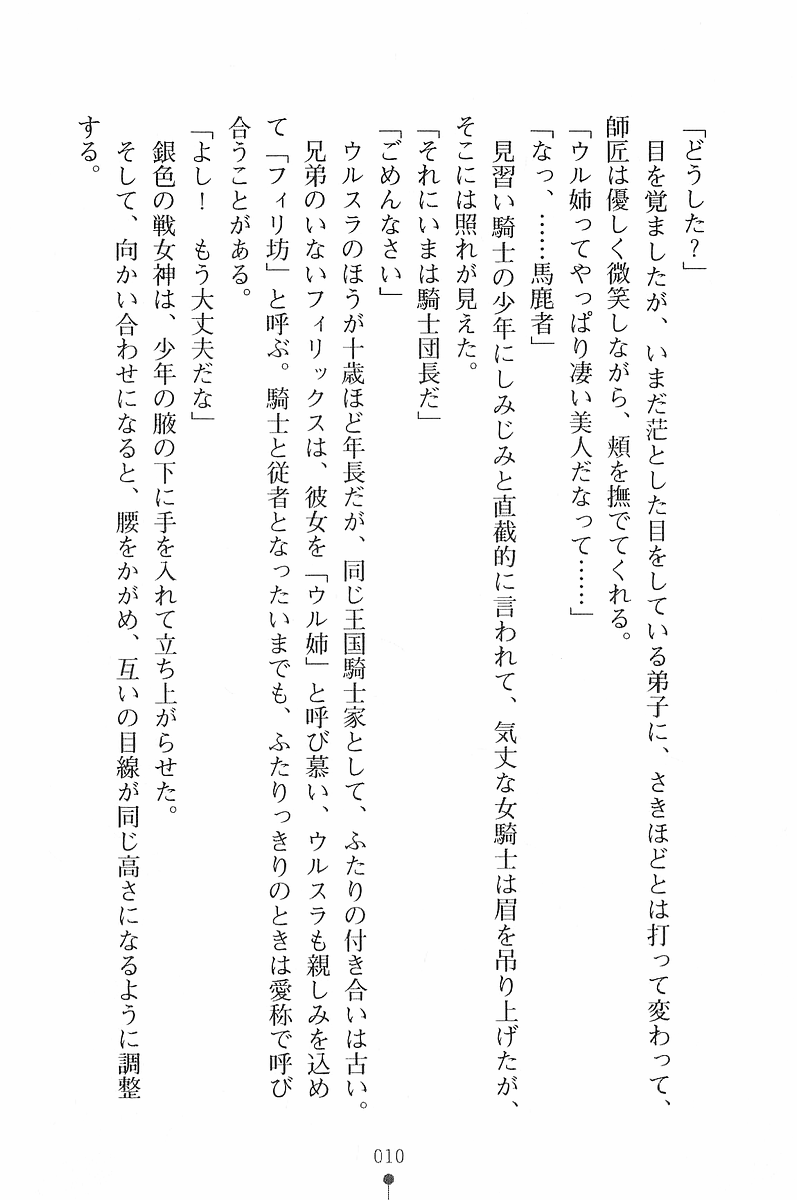 「どうした？」
　目を覚ましたが、いまだ茫とした目をしている弟子に、さきほどとは打って変わって、
師匠は優しく微笑しながら、頬を撫でてくれる。
「ウル姉ってやっぱり凄い美人だなって……」
「なっ、……馬鹿者」
　見習い騎士の少年にしみじみと直截的に言われて、気丈な女騎士は眉を吊り上げたが、
そこには照れが見えた。
「それにいまは騎士団長だ」
「ごめんなさい」
　ウルスラのほうが十歳ほど年長だが、同じ王国騎士家として、ふたりの付き合いは古い。
　兄弟のいないフィリックスは、彼女を「ウル姉」と呼び慕い、ウルスラも親しみを込め
て「フィリ坊」と呼ぶ。騎士と従者となったいまでも、ふたりっきりのときは愛称で呼び
合うことがある。
「よし！　もう大丈夫だな」
　銀色の戦女神は、少年の腋の下に手を入れて立ち上がらせた。
　そして、向かい合わせになると、腰をかがめ、互いの目線が同じ高さになるように調整
する。
010